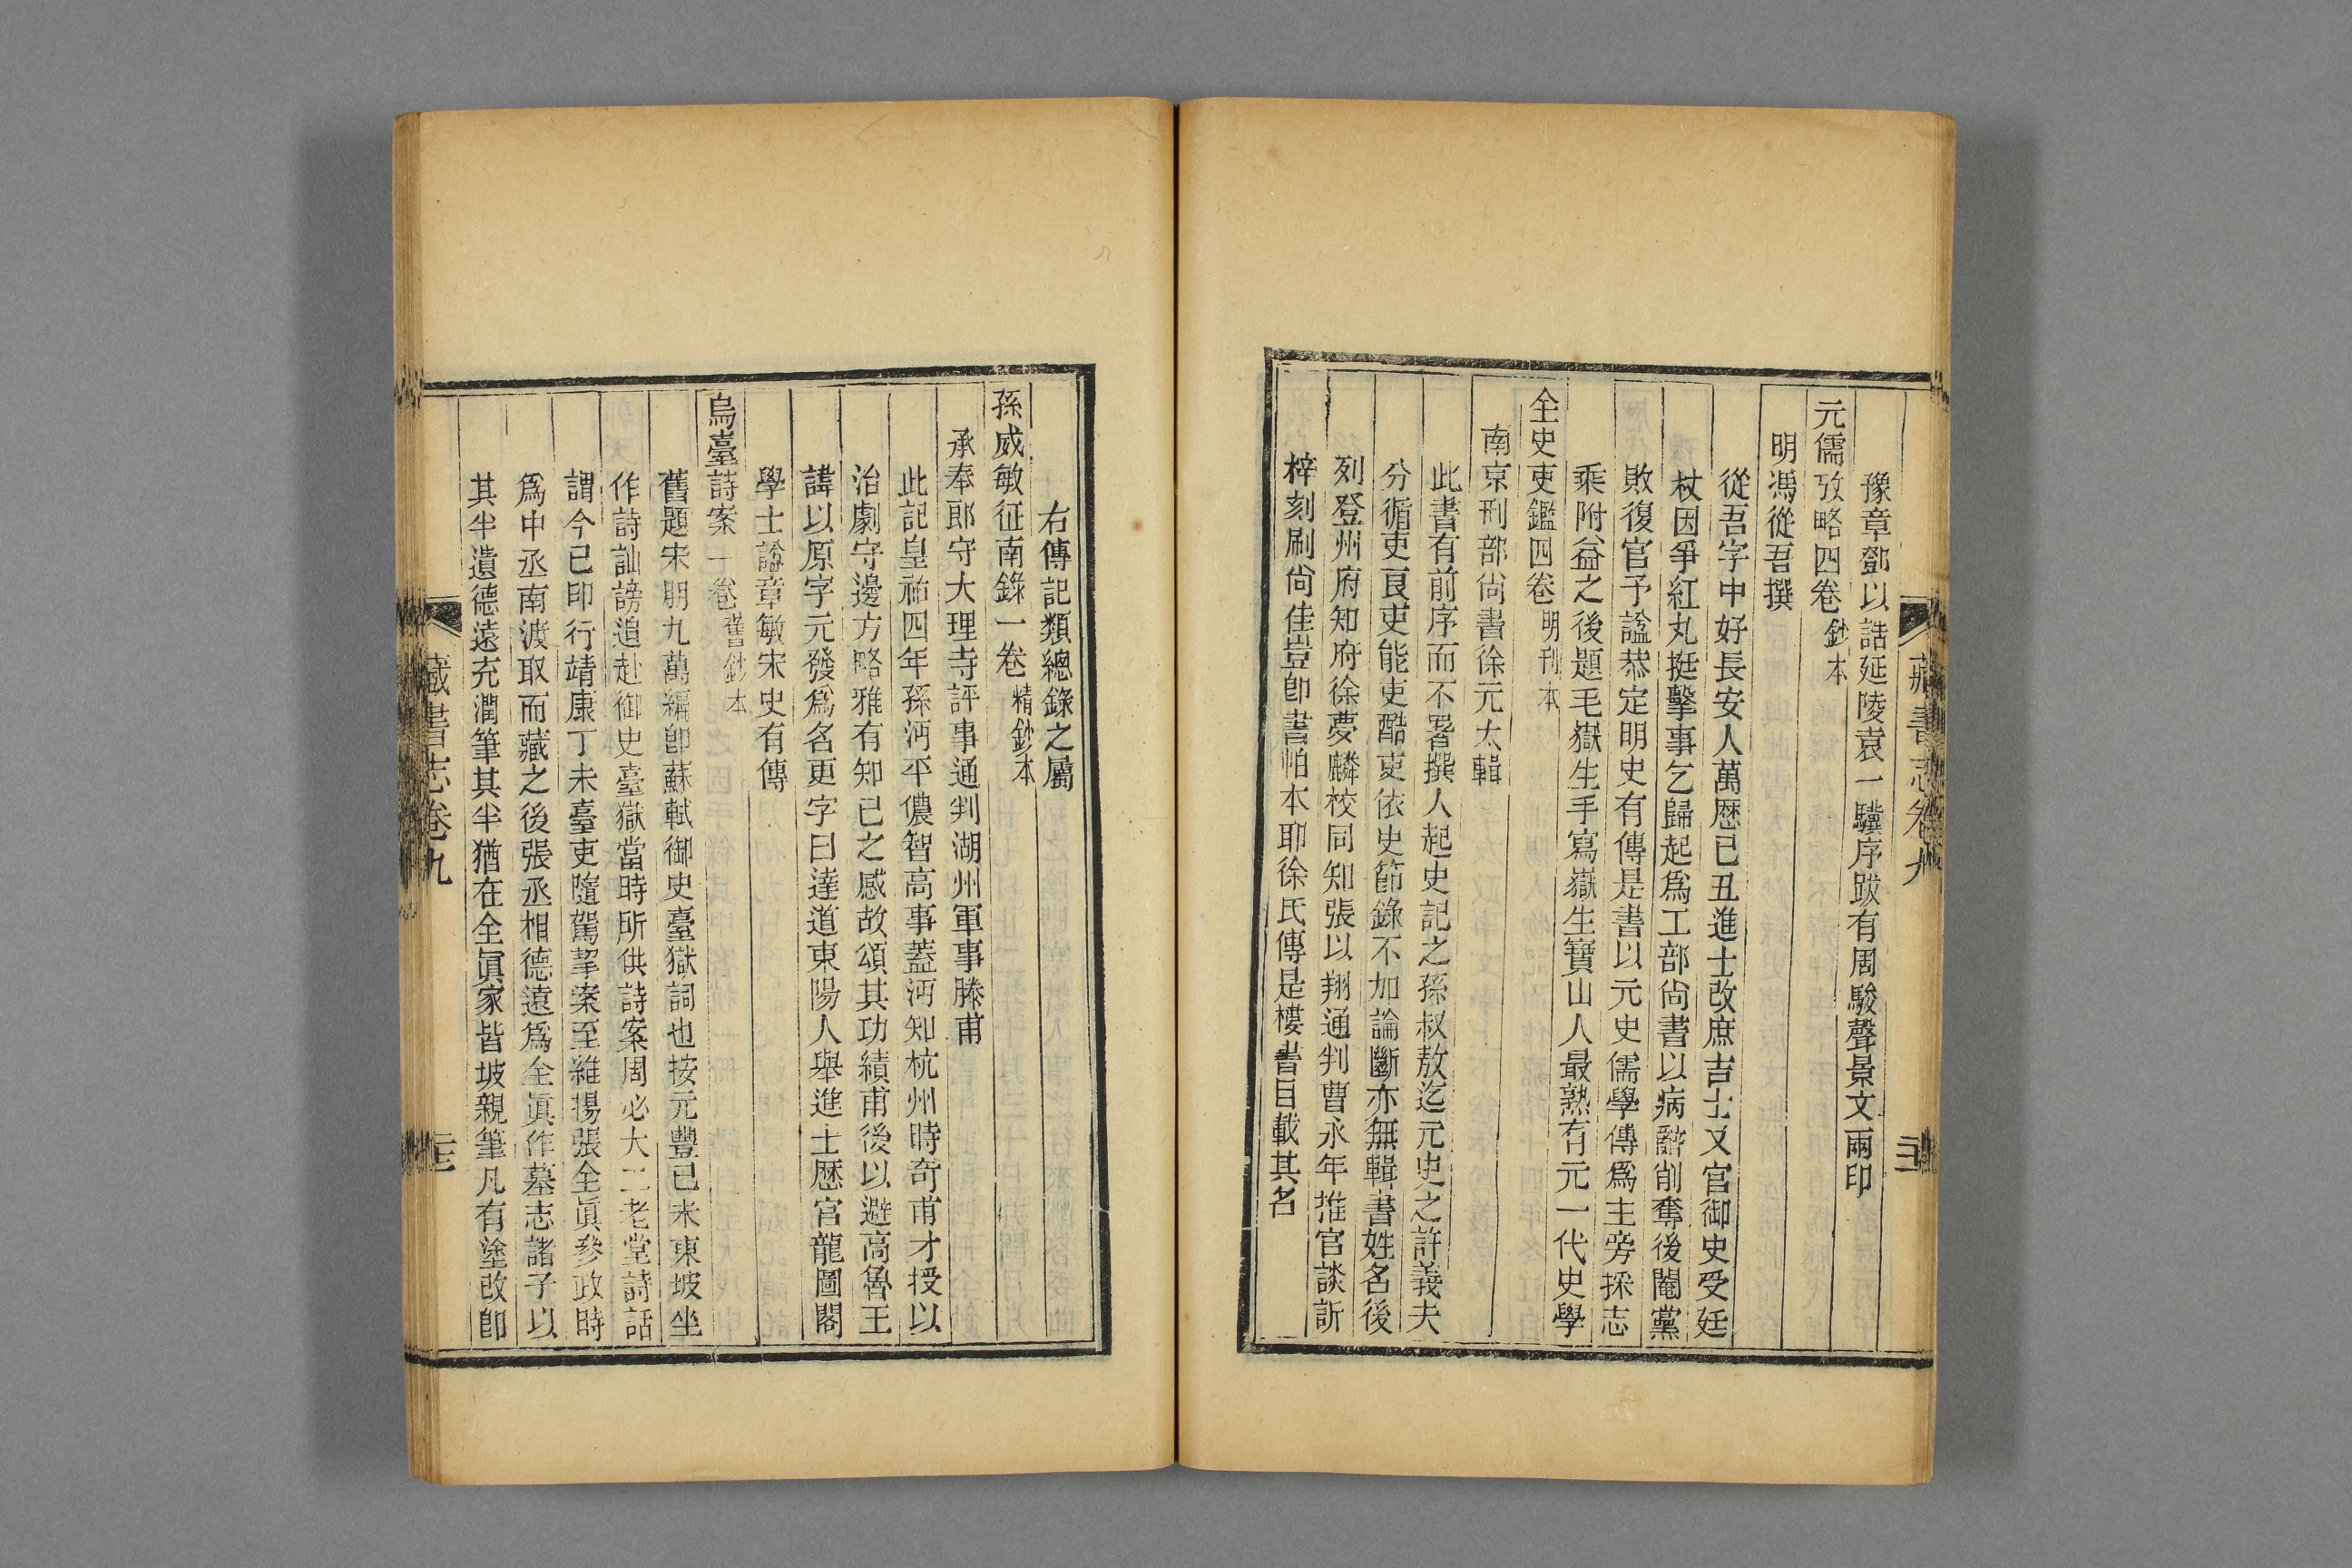 豫章鄧以誥延陵袁一驥序跋有周駿聲景文兩印
元儒攷略四卷鈔本
明馮從吾撰
從吾字中好長安人萬歷己丑進士改庶吉士又官御史受廷
杖因爭紅丸挺擊事乞歸起爲工部尚書以病辭削奪後閹黨
敗復官予諡恭定明史有傳是書以元史儒學傳爲主旁採志
乘附益之後題毛嶽生手寫嶽生寶山人最熟有元一代史學
全史吏鑑四卷明刊本
南京刑部尚書徐元太輯
此書有前序而不署撰人起史記之孫叔敖迄元史之許義夫
分循吏良吏能吏酷吏依史節錄不加論斷亦無輯書姓名後
列登州府知府徐夢麟校同知張以翔通判曹永年推官談訢
梓刻刷尚佳豈卽書帕本耶徐氏傳是樓書目載其名
藏書志卷九
右傳記類總錄之屬
孫威敏征南錄一卷精鈔本
承奉郎守大理寺評事通判湖州軍事滕甫
此記皇祐四年孫沔平儂智高事蓋沔知杭州時奇甫才授以
治劇守邊方略雅有知己之感故頌其功績甫後以避高魯王
諱以原字元發爲名更字曰達道東陽人舉進士歷官龍圖閣
學士諡章敏宋史有傳
烏臺詩案一卷舊鈔本
舊題宋朋九萬編卽蘇軾御史臺獄詞也按元豐己未東坡坐
作詩訕謗追赴御史臺獄當時所供詩案周必大二老堂詩話
謂今已印行靖康丁未臺吏隨駕挈案至維揚張全眞參政時
爲中丞南渡取而藏之後張丞相德遠爲全眞作墓志諸子以
其半遺德遠充潤筆其半猶在全眞家皆坡親筆凡有塗改卽
藏書志卷九